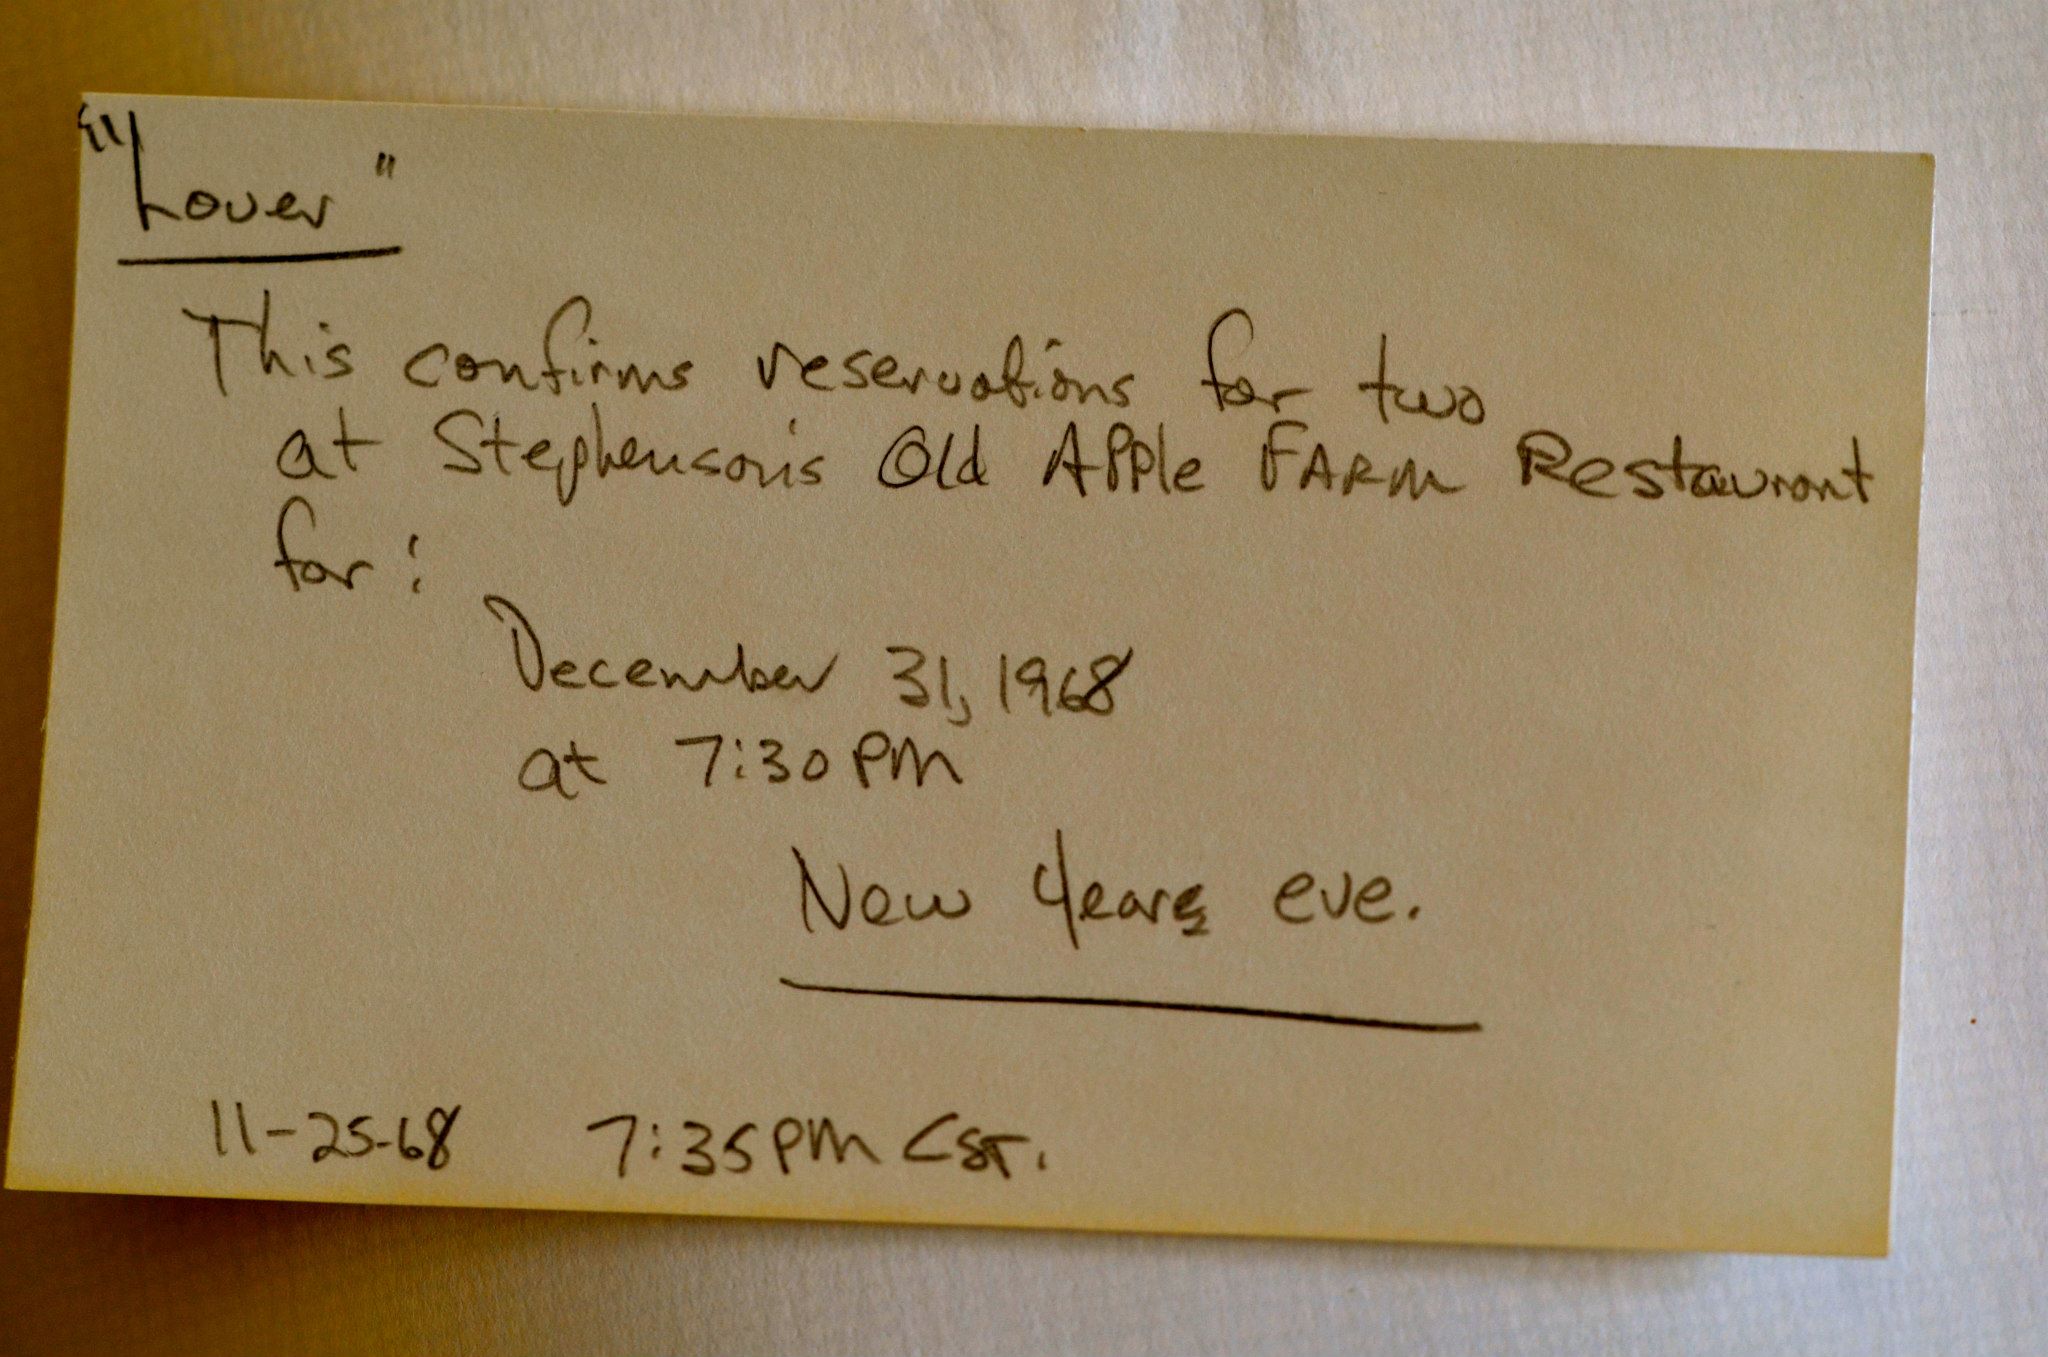 "Lover"
This confirms reservations for two
at Stephenson's Old Apple FARM Restaurant
for:
December 31, 1968
at 7:30 PM
New Years eve.
11-25-68 7:35 PM CST.